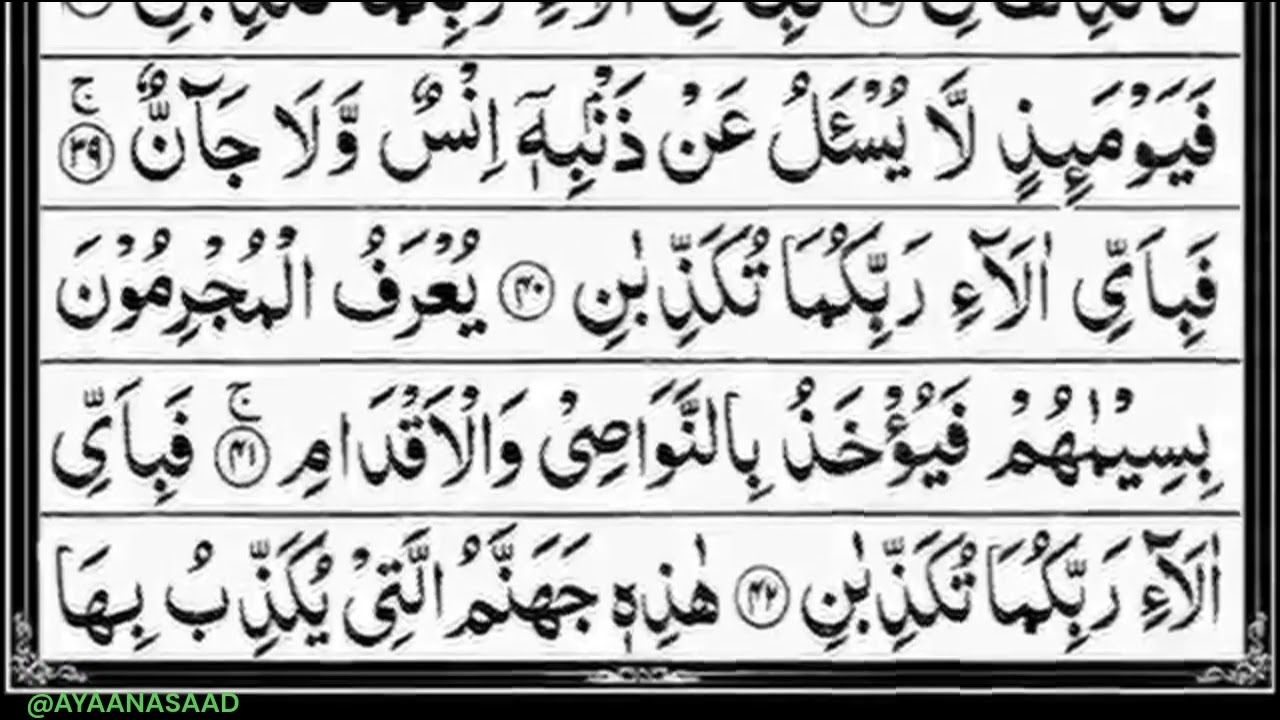 فَيَوْمَىِٕذٍ لَّا يُسْـَٔلُ عَنْ ذَنْۢبِهٖۤ اِنْسٌ وَّلَا جَآنٌّ ۚ‏﴿۳۹﴾
فَبِاَىِّ اٰلَآءِ رَبِّكُمَا تُكَذِّبٰنِ ﴿۴۰﴾ يُعْرَفُ الْمُجْرِمُوْنَ
بِسِيْمٰهُمْ فَيُؤْخَذُ بِالنَّوَاصِىْ وَالْاَقْدَامِ ۚ‏﴿۴۱﴾ فَبِاَىِّ
اٰلَآءِ رَبِّكُمَا تُكَذِّبٰنِ ﴿۴۲﴾ هٰذِهٖ جَهَنَّمُ الَّتِىْ يُكَذِّبُ بِهَا
@AYAANASAAD